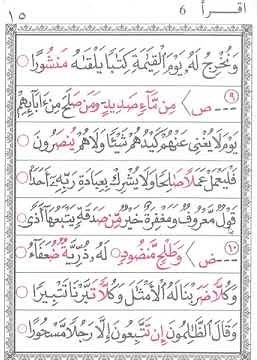 اقرأ 6
١٥
وَنُخْرِجُ لَهُۥ يَوْمَ ٱلْقِيَٰمَةِ كِتَٰبًا يَلْقَىٰهُ مَنشُورًا
٩ --- ص〉 مِن مَّآءٍ صَدِيدٍ وَمَن صَلَحَ مِنْ ءَابَآئِهِمْ
يَوْمَ لَا يُغْنِى عَنْهُمْ كَيْدُهُمْ شَيْـًٔا وَلَا هُمْ يُنصَرُونَ
فَلْيَعْمَلْ عَمَلًا صَٰلِحًا وَلَا يُشْرِكْ بِعِبَادَةِ رَبِّهِۦٓ أَحَدًۢا
قَوْلٌ مَّعْرُوفٌ وَمَغْفِرَةٌ خَيْرٌ مِّن صَدَقَةٍ يَتْبَعُهَآ أَذًى
١٠ --- ض〉 وَطَلْحٍ مَّنضُودٍ لَهُۥ ذُرِّيَّةٌ ضُعَفَآءُ
وَكُلًّا ضَرَبْنَا لَهُ ٱلْأَمْثَٰلَ وَكُلًّا تَبَّرْنَا تَتْبِيرًا
وَقَالَ ٱلظَّٰلِمُونَ إِن تَتَّبِعُونَ إِلَّا رَجُلًا مَّسْحُورًا